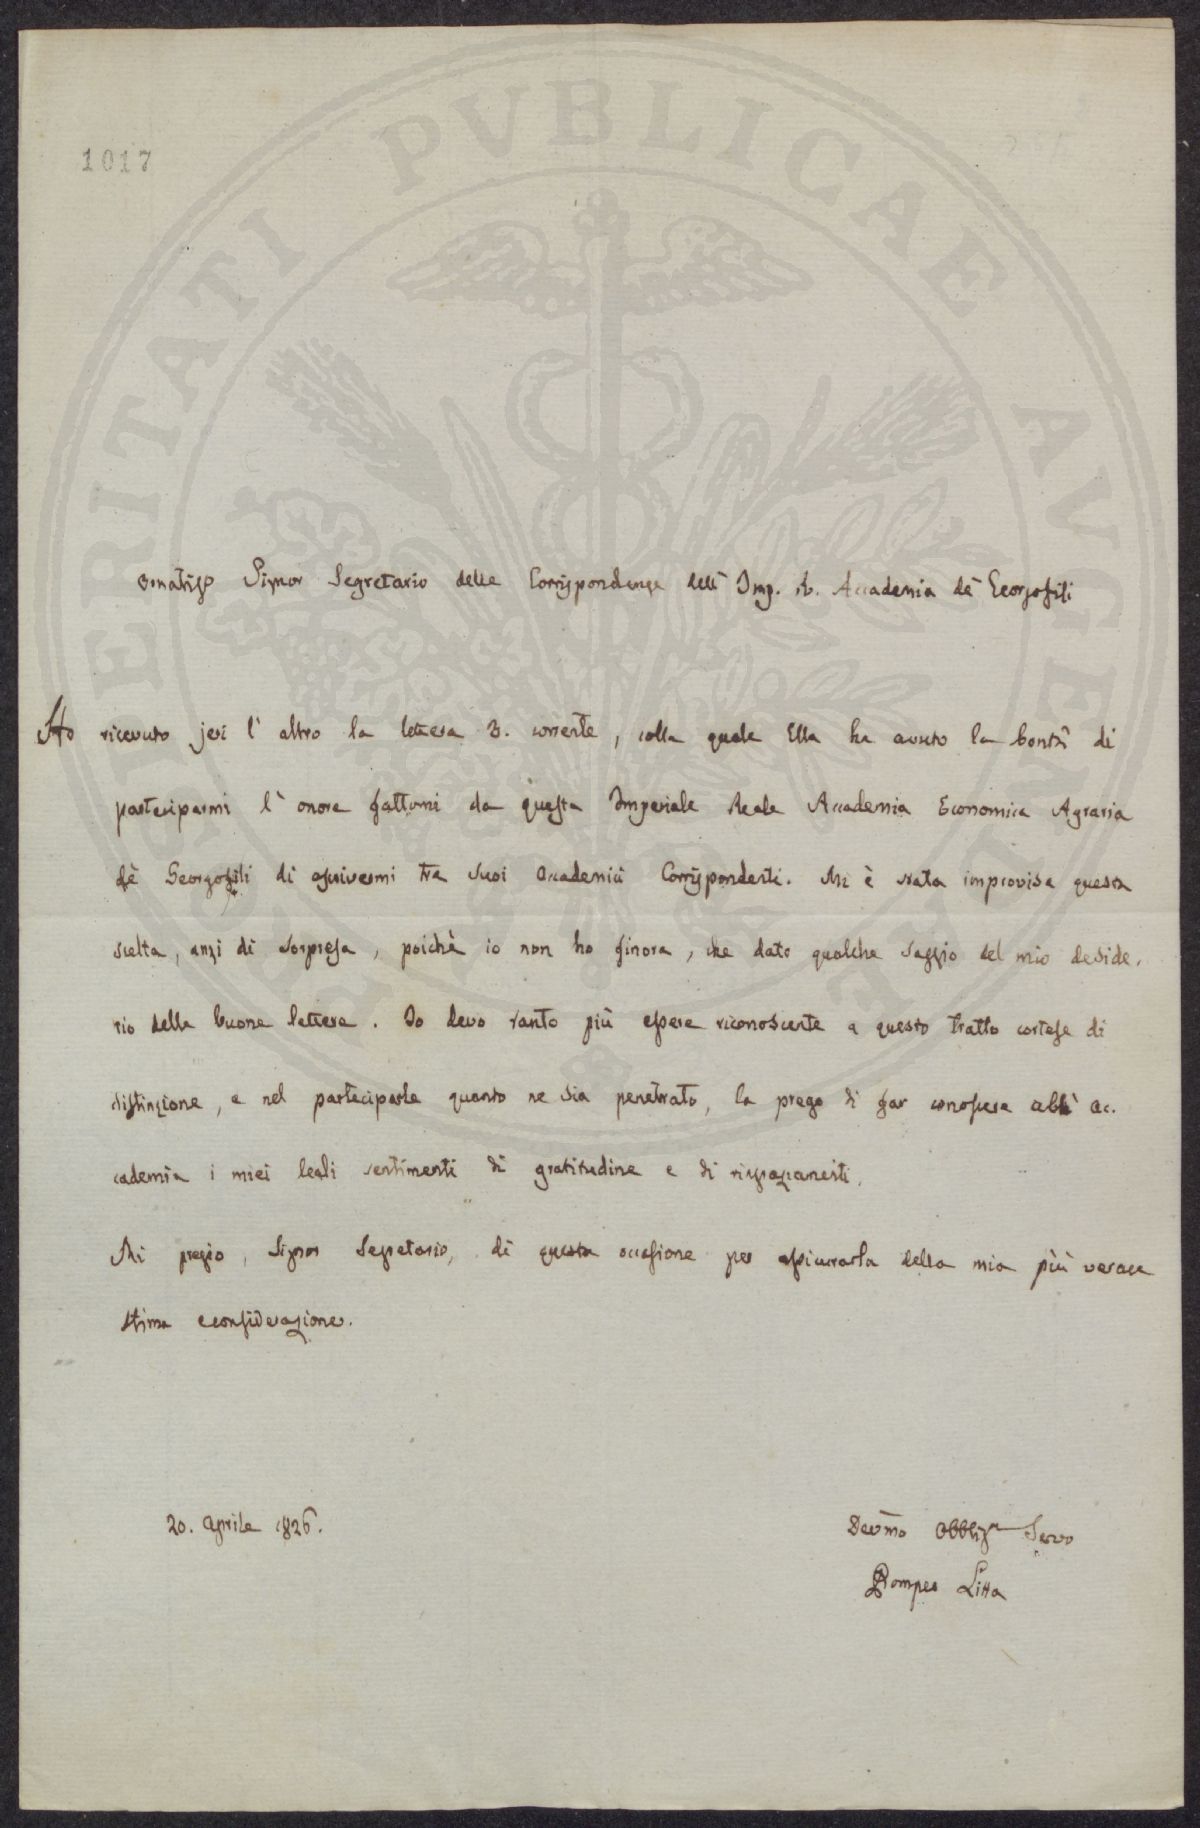 1017
PROSPERITATI PVBLICAE AVGENDAE
Ornatis.o Signor Segretario delle Corrispondenze dell' Imp. R. Accademia de' Georgofili
Ho ricevuto jeri l' altro la lettera 3. corrente, colla quale Ella ha avuto la bontà di
parteciparmi l' onore fattomi da questa Imperiale Reale Accademia Economica Agraria
de' Georgofili di ascrivermi tra suoi Accademici Corrispondenti. Mi è stata improvisa questa
scelta, anzi di sorpresa, poichè io non ho finora, che dato qualche saggio del mio deside-
rio delle buone lettere. Io devo tanto più essere riconoscente a questo tratto cortese di
distinzione, e nel parteciparle quanto ne sia penetrato, la prego di far conoscere all' Ac-
cademia i miei leali sentimenti di gratitudine e di ringraziamenti.
Mi pregio, Signor Segretario, di questa occasione per assicurarla della mia più verace
stima e considerazione.
20. Aprile 1826.
Devmo Obblig.mo Servo
Pompeo Litta